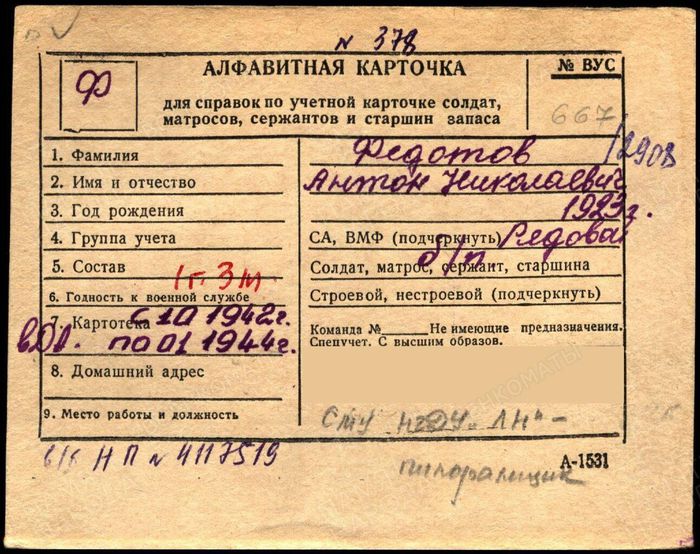 N 378
Ф
АЛФАВИТНАЯ КАРТОЧКА
для справок по учетной карточке солдат,
матросов, сержантов и старшин запаса
№ ВУС
667
1. Фамилия Федотов /2908
2. Имя и отчество Антон Николаевич
3. Год рождения 1923г.
4. Группа учета СА, ВМФ (подчеркнуть) Рядовой
5. Состав Солдат, матрос, сержант, старшина
б/п
1г. 3м
6. Годность к военной службе Строевой, нестроевой (подчеркнуть)
7. Картотека с 10 1942г. Команда №_____ Не имеющие предназначения.
по 01 1944г. Спецучет. С высшим образов.
8. Домашний адрес
9. Место работы и должность СМУ НГДУ "ЛН" –
в/б НП N 4117519
пилорамщик
А-1531